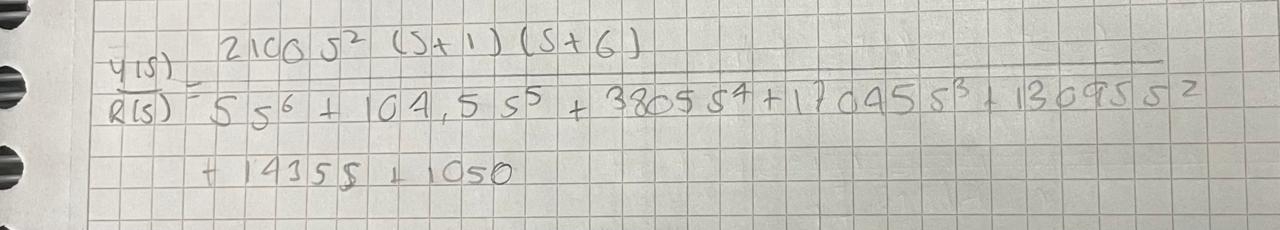 Y(s)/R(s) = 2100 s² (s+1) (s+6) / 5 s⁶ + 104,5 s⁵ + 3805 s⁴ + 17045 s³ + 13095 s²
+ 1435 s + 1050